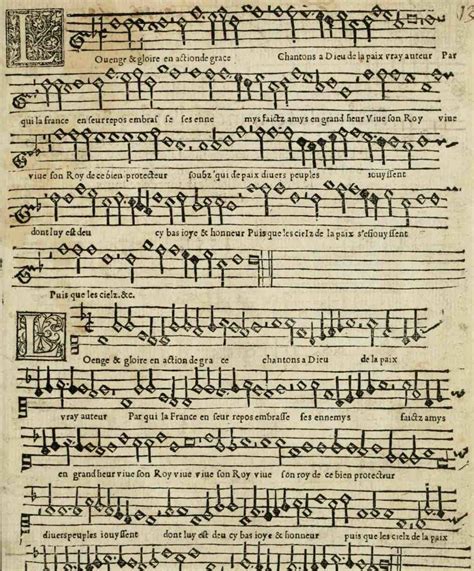 13
L Ouenge & gloire en action de grace Chantons a Dieu de la paix vray auteur Par
qui la france en seur repos embras se ses enne mys faictz amys en grand heur Viue son Roy viue
viue son Roy de ce bien protecteur soubz 'qui de paix diuers peuples iouyssent
dont luy est deu cy bas ioye & honneur Puis que les cielz de la paix s'esiouyssent
Puis que les cielz. &c.
L Oenge & gloire en action de gra ce chantons a Dieu de la paix
vray auteur Par qui la France en seur repos embrasse ses ennemys faictz amys
en grand heur viue son Roy viue viue son Roy viue son roy de ce bien protecteur
diuers peuples iouyssent dont luy est deu cy bas ioye & honneur puis que les cielz de la paix